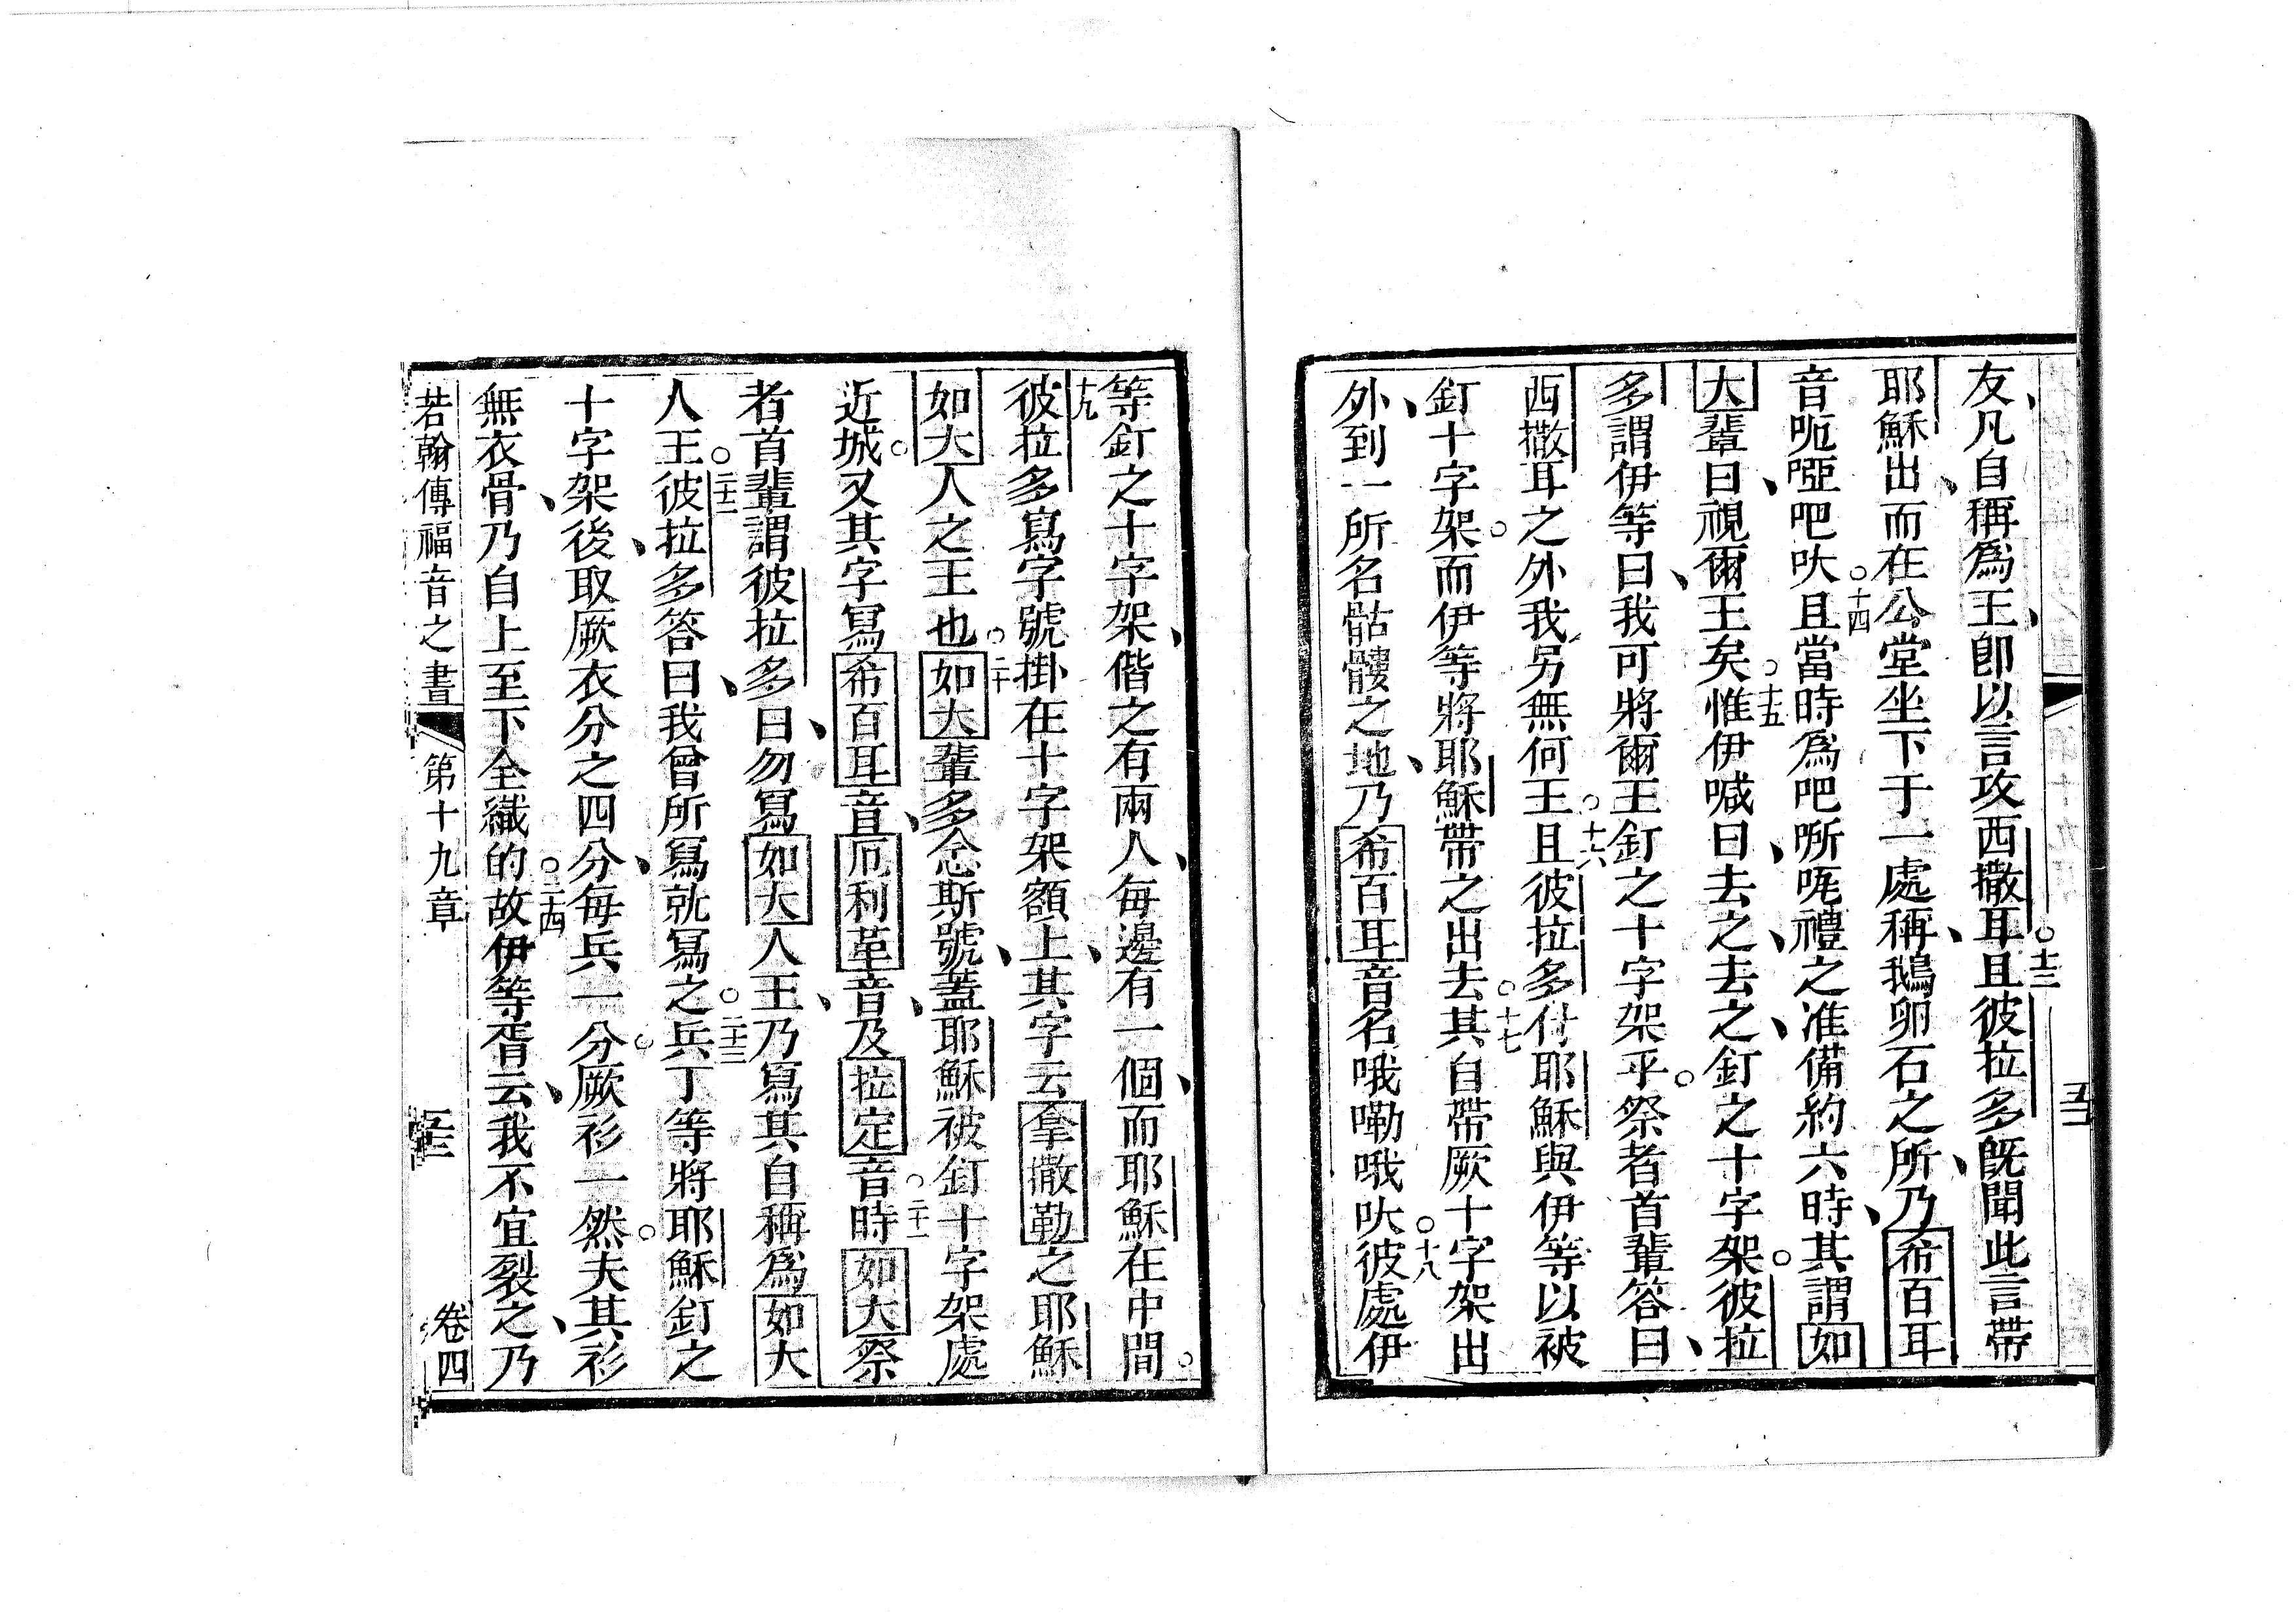 友凡自稱爲王卽以言攻西撒耳○十三且彼拉多旣聞此言帶
耶穌出而在公堂坐下于一處稱鵝卵石之所乃希百耳
音呃啞吧吠○十四且當時爲吧㗭唍禮之准備約六時其謂如
大輩曰視爾王矣○十五惟伊喊曰去之去之釘之十字架○彼拉
多謂伊等曰我可將爾王釘之十字架乎○祭者首輩答曰
西撒耳之外我另無何王○十六且彼拉多付耶穌與伊等以被
釘十字架○而伊等將耶穌帶之出去○十七其自帶厥十字架出
外到一所名骷髏之地乃希百耳音名哦嘞哦吠○十八彼處伊
等釘之十字架偕之有兩人每邊有一個而耶穌在中間○
十九彼拉多寫字號掛在十字架額上其字云拿撒勒之耶穌
如大人之王也○二十如大輩多念斯號蓋耶穌被釘十字架處
近城○又其字寫希百耳音厄利革音及拉定音○二十一時如大祭
者首輩謂彼拉多曰勿寫如大人王乃寫其自稱爲如大
人王○二十二彼拉多答曰我曾所寫就寫之○二十三兵丁等將耶穌釘之
十字架後取厥衣分之四分每兵一分○厥衫一然○夫其衫
無衣骨乃自上至下全織的○二十四故伊等胥云我不宜裂之乃
若翰傳福音之書 第十九章 五十三 卷四